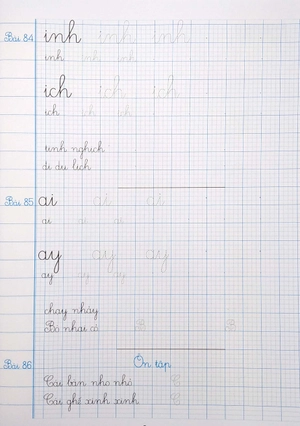 Bài 84 inh inh inh
inh inh inh
ich ich ich
ich ich ich
tinh nghịch
đi du lịch
Bài 85 ai ai ai
ai ai ai
ay ay ay
ay ay ay
chạy nhảy
Bò nhai cỏ B B
Bài 86 Ôn tập
Cái bàn nho nhỏ C
Cái ghế xinh xinh C